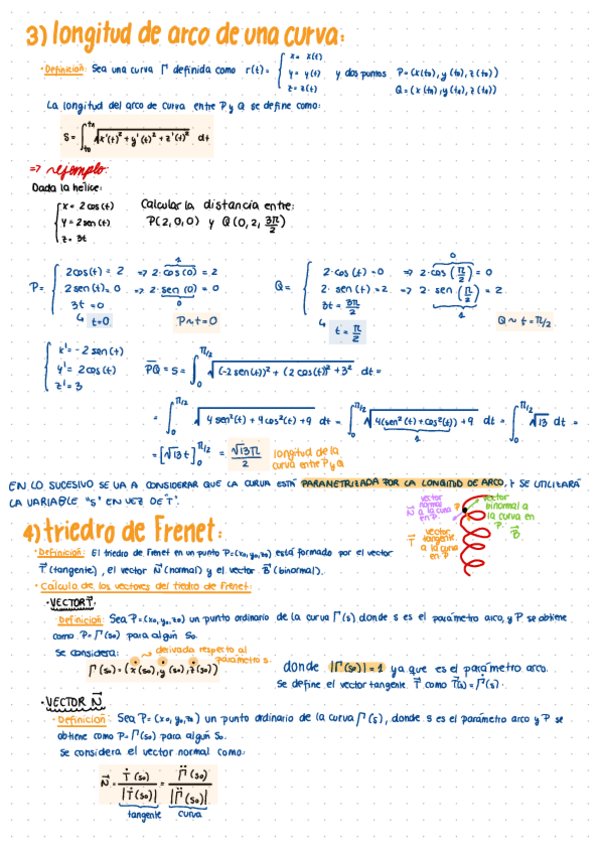 3) longitud de arco de una curva:
· Definición: Sea una curva Γ definida como r(t) = { x = x(t) y = y(t) z = z(t) y dos puntos P=(x(t₀), y(t₀), z(t₀)) Q=(x(t₀), y(t₀), z(t₀))
La longitud del arco de curva entre P y Q se define como:
S = ∫ √x'(t)² + y'(t)² + z'(t)² dt
=> ejemplo:
Dada la hélice:
{ x = 2cos(t) y = 2sen(t) z = 3t
Calcular la distancia entre:
P(2,0,0) y Q(0,2,3π/2)
P = { 2cos(t) = 2 => 2·cos(0) = 2 1
2sen(t) = 0 => 2·sen(0) = 0 0
3t = 0
↳ t=0 P~t=0
Q = { 2·cos(t) = 0 => 2·cos(π/2) = 0 0
2·sen(t) = 2 => 2·sen(π/2) = 2 1
3t = 3π/2
↳ t = π/2 Q~t=π/2
{ x' = -2sen(t) y' = 2cos(t) z' = 3
PQ = S = ∫₀^π/2 √(-2sen(t))² + (2cos(t))² + 3² dt =
= ∫₀^π/2 √4sen²(t) + 4cos²(t) + 9 dt = ∫₀^π/2 √4(sen²(t)+cos²(t)) + 9 dt = ∫₀^π/2 √13 dt =
1
= [√13 t]₀^π/2 = √13π/2 longitud de la curva entre P y Q
EN LO SUCESIVO SE VA A CONSIDERAR QUE LA CURVA ESTÁ PARAMETRIZADA POR LA LONGITUD DE ARCO, Y SE UTILIZARÁ
LA VARIABLE "S" EN VEZ DE T.
vector normal a la curva en P. N
vector binormal a la curva en P. B
vector tangente a la curva en P T
P
4) triedro de Frenet:
· Definición: El triedro de Frenet en un punto P=(x₀,y₀,z₀) está formado por el vector
T (tangente), el vector N (normal) y el vector B (binormal).
· Cálculo de los vectores del tiedro de Frenet:
· VECTOR T:
· Definición: Sea P=(x₀,y₀,z₀) un punto ordinario de la curva Γ(s) donde s es el parámetro arco, y P se obtiene
como P=Γ(s₀) para algún s₀.
Se considera: derivada respecto al parámetro s.
Γ̇(s₀) = (ẋ(s₀), ẏ(s₀), ż(s₀)) donde |Γ̇(s₀)| = 1 ya que es el parámetro arco.
Se define el vector tangente T como T(s) = Γ̇(s).
· VECTOR N
· Definición: Sea P=(x₀,y₀,z₀) un punto ordinario de la curva Γ(s), donde s es el parámetro arco y P se
obtiene como P=Γ(s₀) para algún s₀.
Se considera el vector normal como:
N = Ṫ(s₀)/|Ṫ(s₀)| = Γ̈(s₀)/|Γ̈(s₀)|
tangente curva